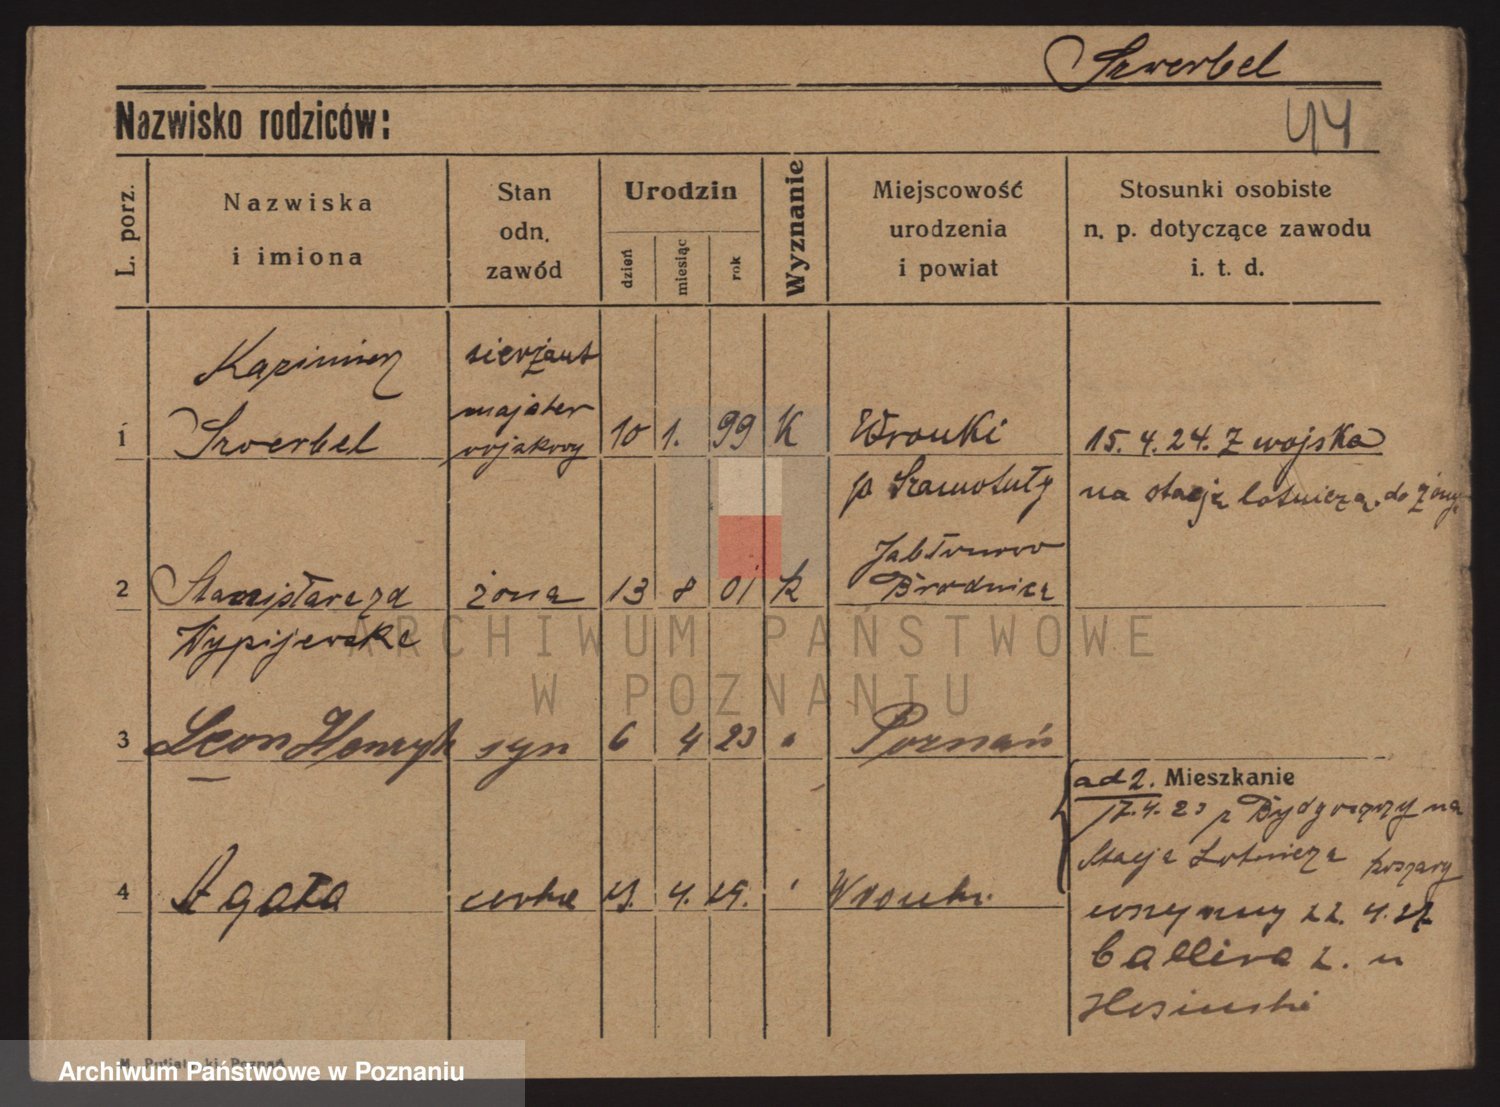 Szwerbel
Nazwisko rodziców:
44
L. porz.
Nazwiska
i imiona
Stan
odn.
zawód
Urodzin
dzień
miesiąc
rok
Wyznanie
Miejscowość
urodzenia
i powiat
Stosunki osobiste
n. p. dotyczące zawodu
i. t. d.
1
Kazimierz
Szwerbel
sierżant
majster
wojskowy
10 1. 99 K
Wronki
p Szamotuły
15. 4. 24. z wojska
na stację lotniczą. do żony
2
Stanisława zd
Wypijewska
żona
13 8 01 k
Jabłonowo
Brodnica
3
Leon Henryk
syn
6 4 23 "
Poznań
ad 2. Mieszkanie
17. 4. 23 z Bydgoszczy na
Stację Lotniczą koszary
4
Agata
córka
4.
Wronki.
22. 4. 27
2. u
ARCHIWUM PAŃSTWOWE
W POZNANIU
M. Putiatycki Poznań
Archiwum Państwowe w Poznaniu